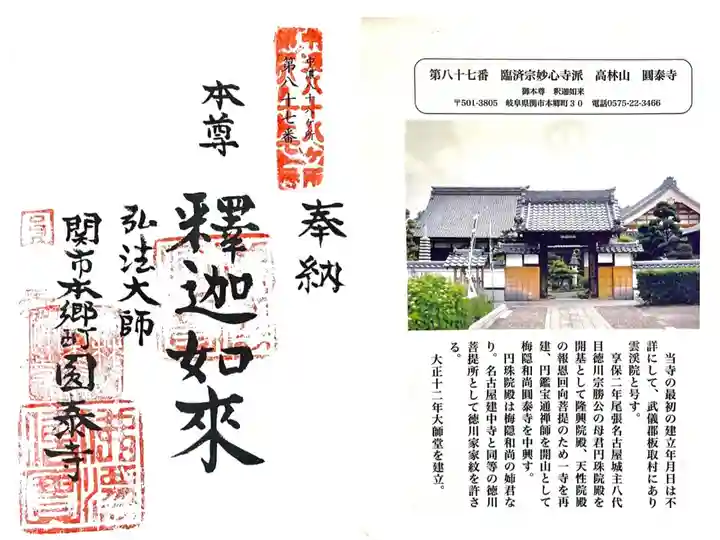 奉納
中濃八十八ヶ所
第八十七番
本尊
釋迦如來
弘法大師
関市本郷町圓泰寺
第八十七番 臨済宗妙心寺派 高林山 圓泰寺
御本尊 釈迦如来
〒501-3805 岐阜県関市本郷町30 電話0575-22-3466
当寺の最初の建立年月日は不
詳にして、武儀郡板取村にあり
雲渓院と号す。
享保二年尾張名古屋城主八代
目徳川宗勝公の母君円珠院殿を
開基として隆興院殿、天性院殿
の報恩回向菩提のため一寺を再
建、円鑑宝通禅師を開山として
梅隠和尚圓泰寺を中興す。
円珠院殿は梅隠和尚の姉君な
り。名古屋建中寺と同等の徳川
菩提所として徳川家家紋を許さ
る。
大正十二年大師堂を建立。